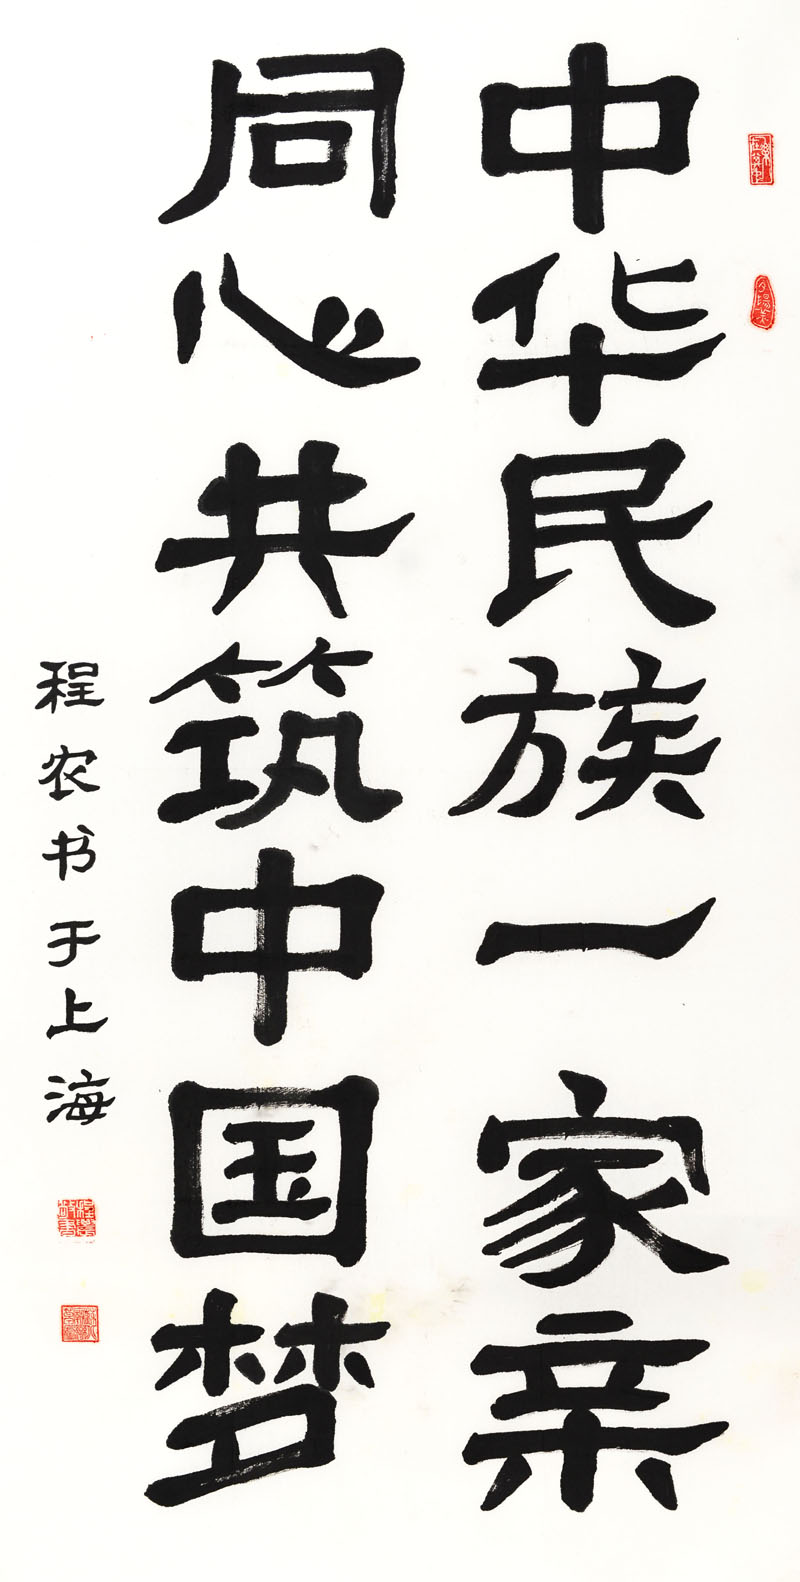 中华民族一家亲
同心共筑中国梦
程农书于上海